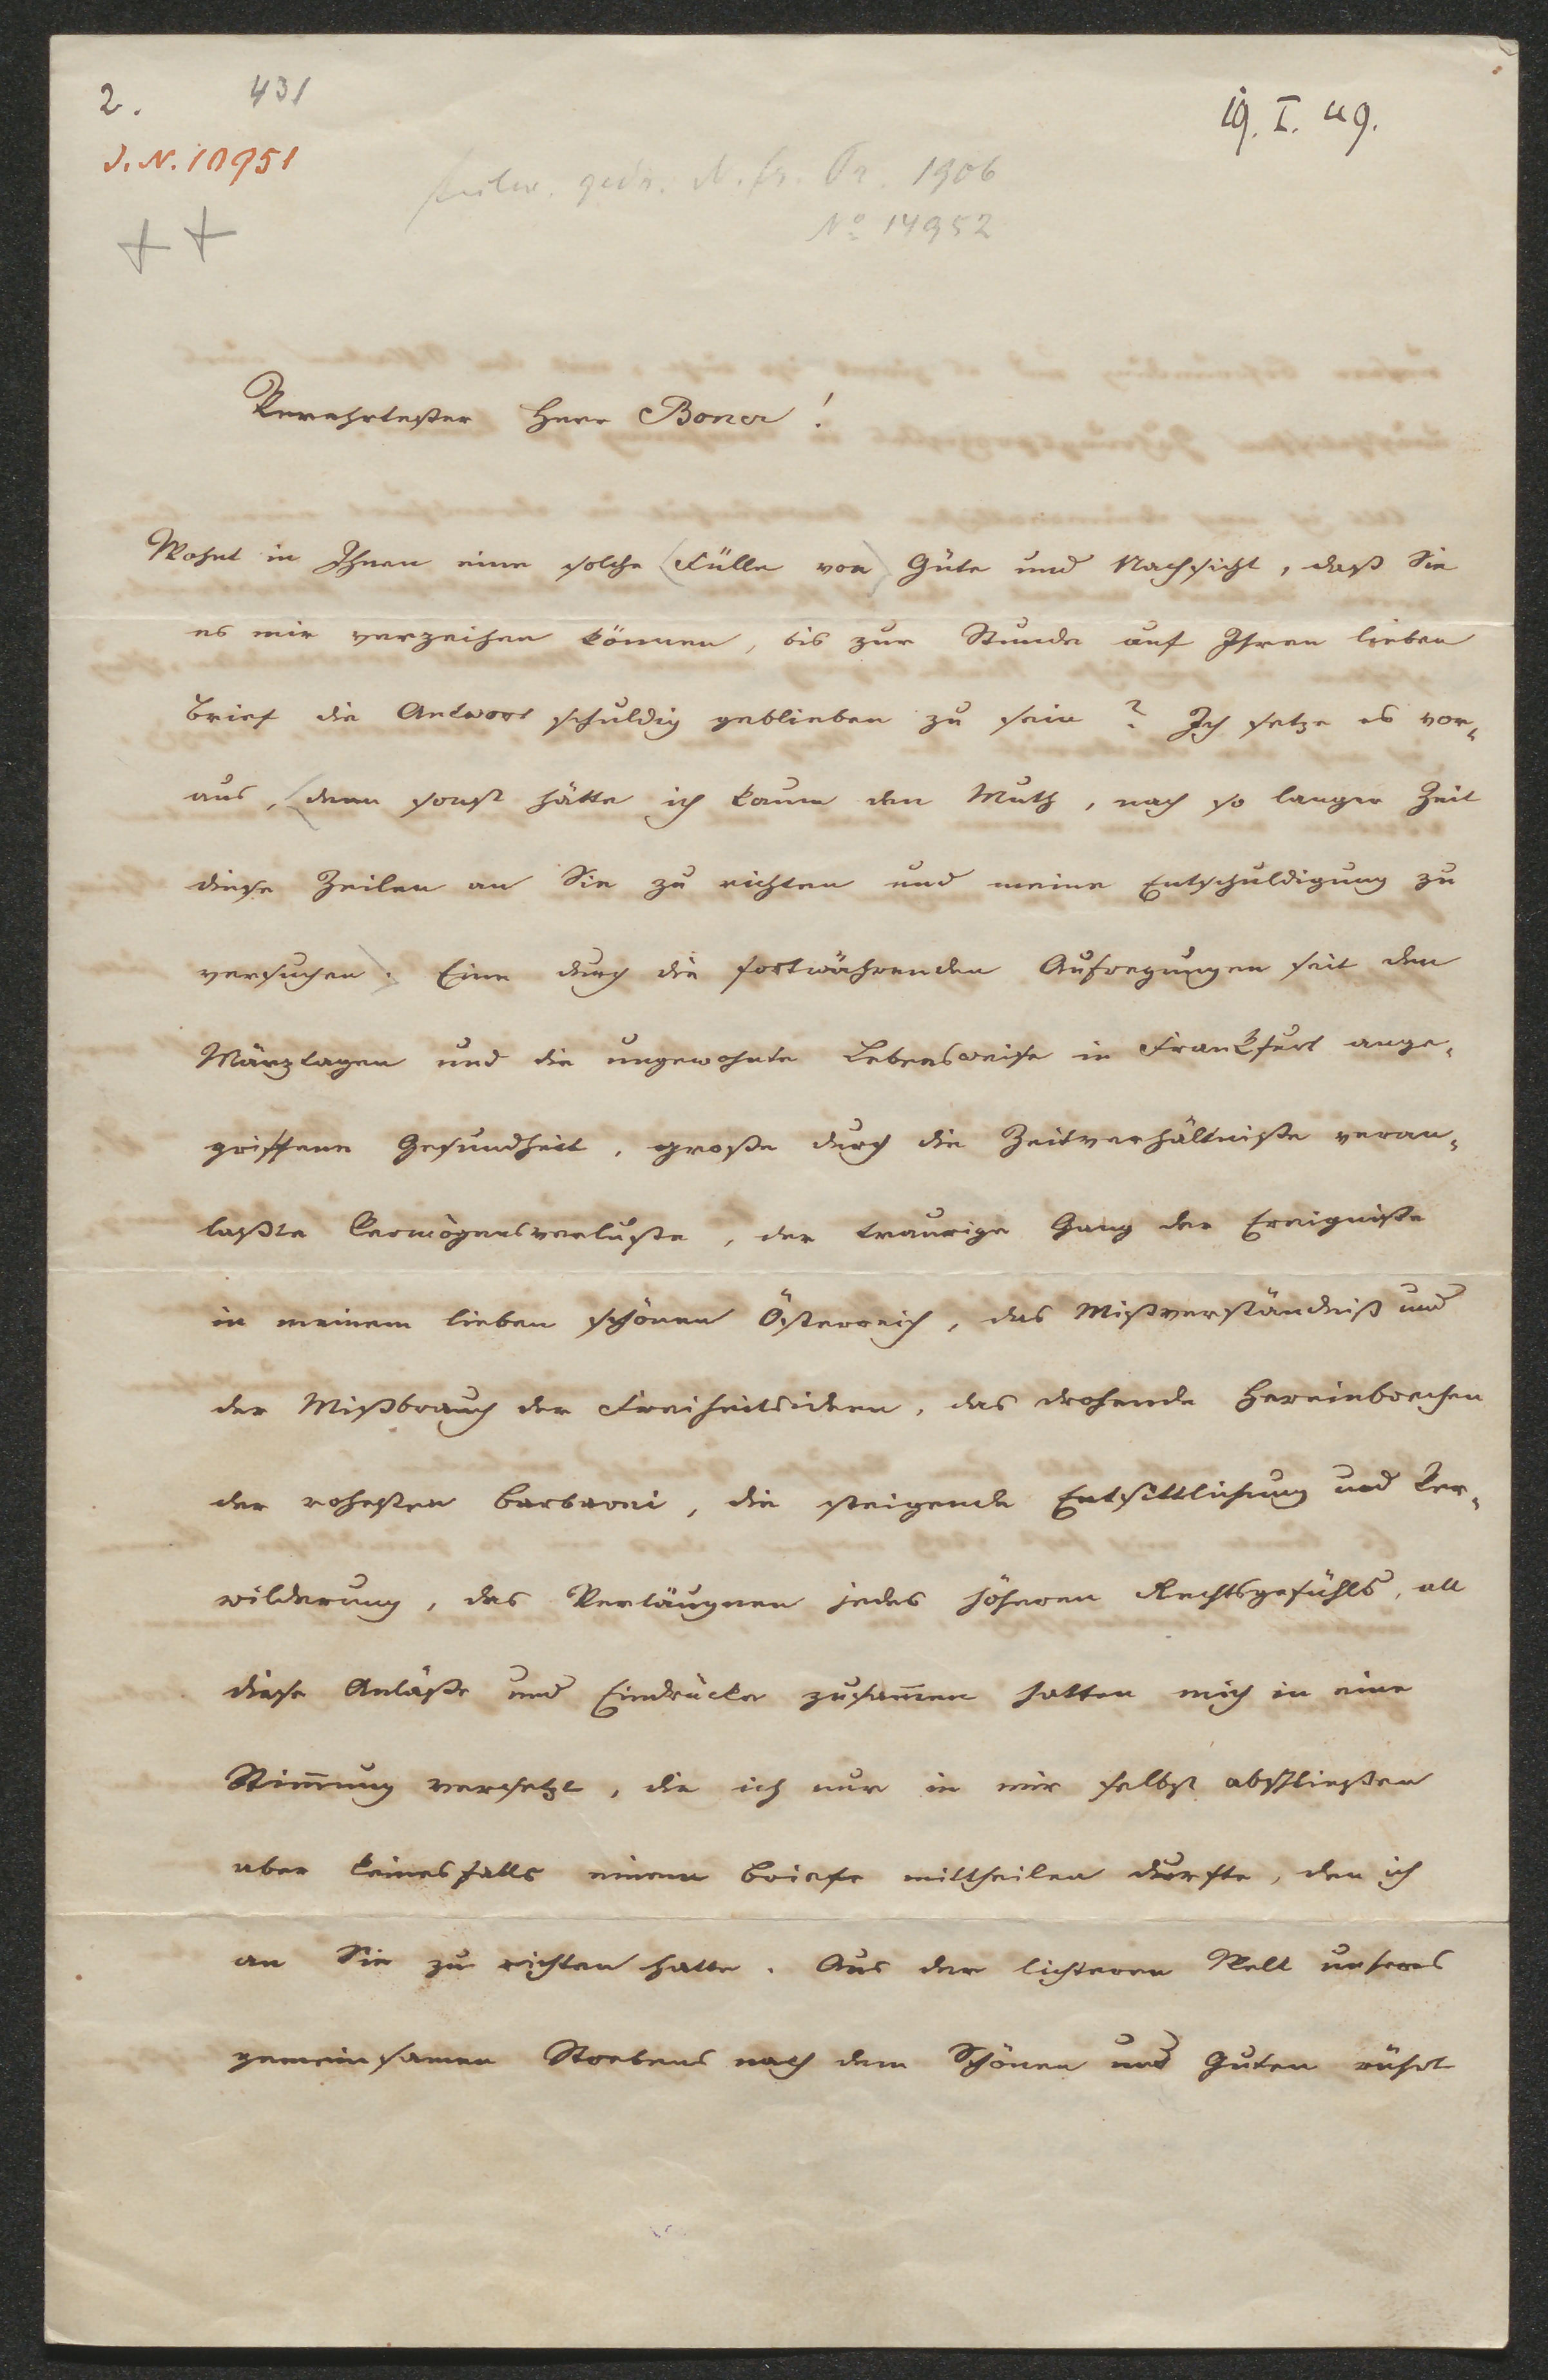 2. 431
19. I. 49.
J. N. 10951
teilw. gedr. N. fr. Pr. 1906
Nº 14952
Verehrtester Herr Boner!
Wohnt in Ihnen eine solche (Fülle von) Güte und Nachsicht, daß Sie
es mir verzeihen können, bis zur Stunde auf Ihren lieben
Brief die Antwort schuldig geblieben zu sein? Ich setze es vor-
aus, (denn sonst hätte ich kaum den Muth, nach so langer Zeit
diese Zeilen an Sie zu richten und meine Entschuldigung zu
versuchen). Eine durch die fortwährenden Aufregungen seit den
Märztagen und die ungewohnte Lebensweise in Frankfurt ange-
griffene Gesundheit, große durch die Zeitverhältniße veran-
laßte Vermögensverluste, der traurige Gang der Ereigniße
in meinem lieben schönen Österreich, das Mißverständniß und
der Mißbrauch der Freiheitsideen, das drohende Hereinbrechen
der rohesten Barbarei, die steigende Entsittlichung und Ver-
wilderung, das Verläugnen jedes höheren Rechtsgefühls, all
diese Anläße und Eindrücke zusam̅en hatten mich in eine
Stim̅ung versetzt, die ich nur in mir selbst abschließen
aber keinesfalls einem Briefe mittheilen durfte, den ich
an Sie zu richten hatte. Aus der lichteren Welt unseres
gemeinsamen Strebens nach dem Schönen und Guten rührt